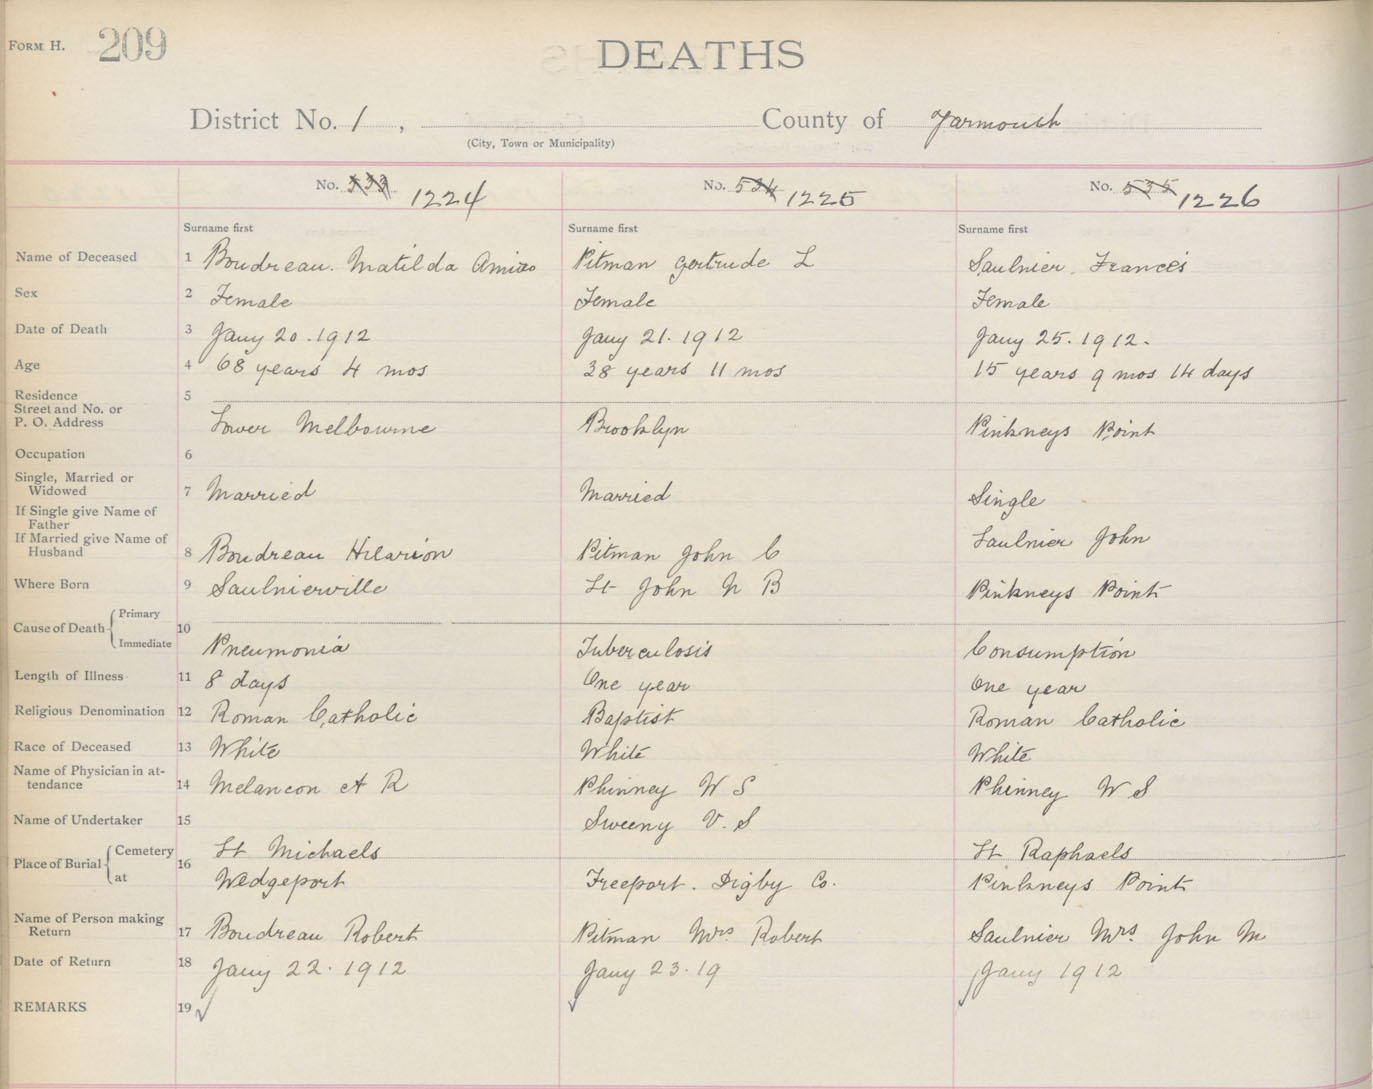 FORM H. 209
DEATHS
District No. 1 , County of Yarmouth
(City, Town or Municipality)
No. 533 1224 No. 534 1225 No. 535 1226
Surname first Surname first Surname first
Name of Deceased 1 Boudreau. Matilda Pitman Gertrude L Saulnier. Frances
Sex 2 Female Female Female
Date of Death 3 Jany 20. 1912 Jany 21. 1912 Jany 25. 1912.
Age 4 68 years 4 mos 38 years 11 mos 15 years 9 mos 14 days
Residence 5
Street and No. or
P. O. Address Lower Melbourne Brooklyn Pinkneys Point
Occupation 6
Single, Married or
Widowed 7 Married Married Single
If Single give Name of
Father
If Married give Name of Saulnier John
Husband 8 Boudreau Hilarion Pitman John C
Where Born 9 Saulnierville St John N B Pinkneys Point
Cause of Death Primary 10
Immediate Pneumonia Tuberculosis Consumption
Length of Illness 11 8 days One year One year
Religious Denomination 12 Roman Catholic Baptist Roman Catholic
Race of Deceased 13 White White White
Name of Physician in at-
tendance 14 Melancon A R Phinney W S Phinney W S
Name of Undertaker 15 Sweeny V. S
Place of Burial Cemetery 16 St Michaels St Raphaels
at Wedgeport Freeport. Digby Co. Pinkneys Point
Name of Person making
Return 17 Boudreau Robert Pitman Mrs. Robert Saulnier Mrs. John M
Date of Return 18 Jany 22. 1912 Jany 23. 19 Jany 1912
REMARKS 19 ✓ ✓ ✓